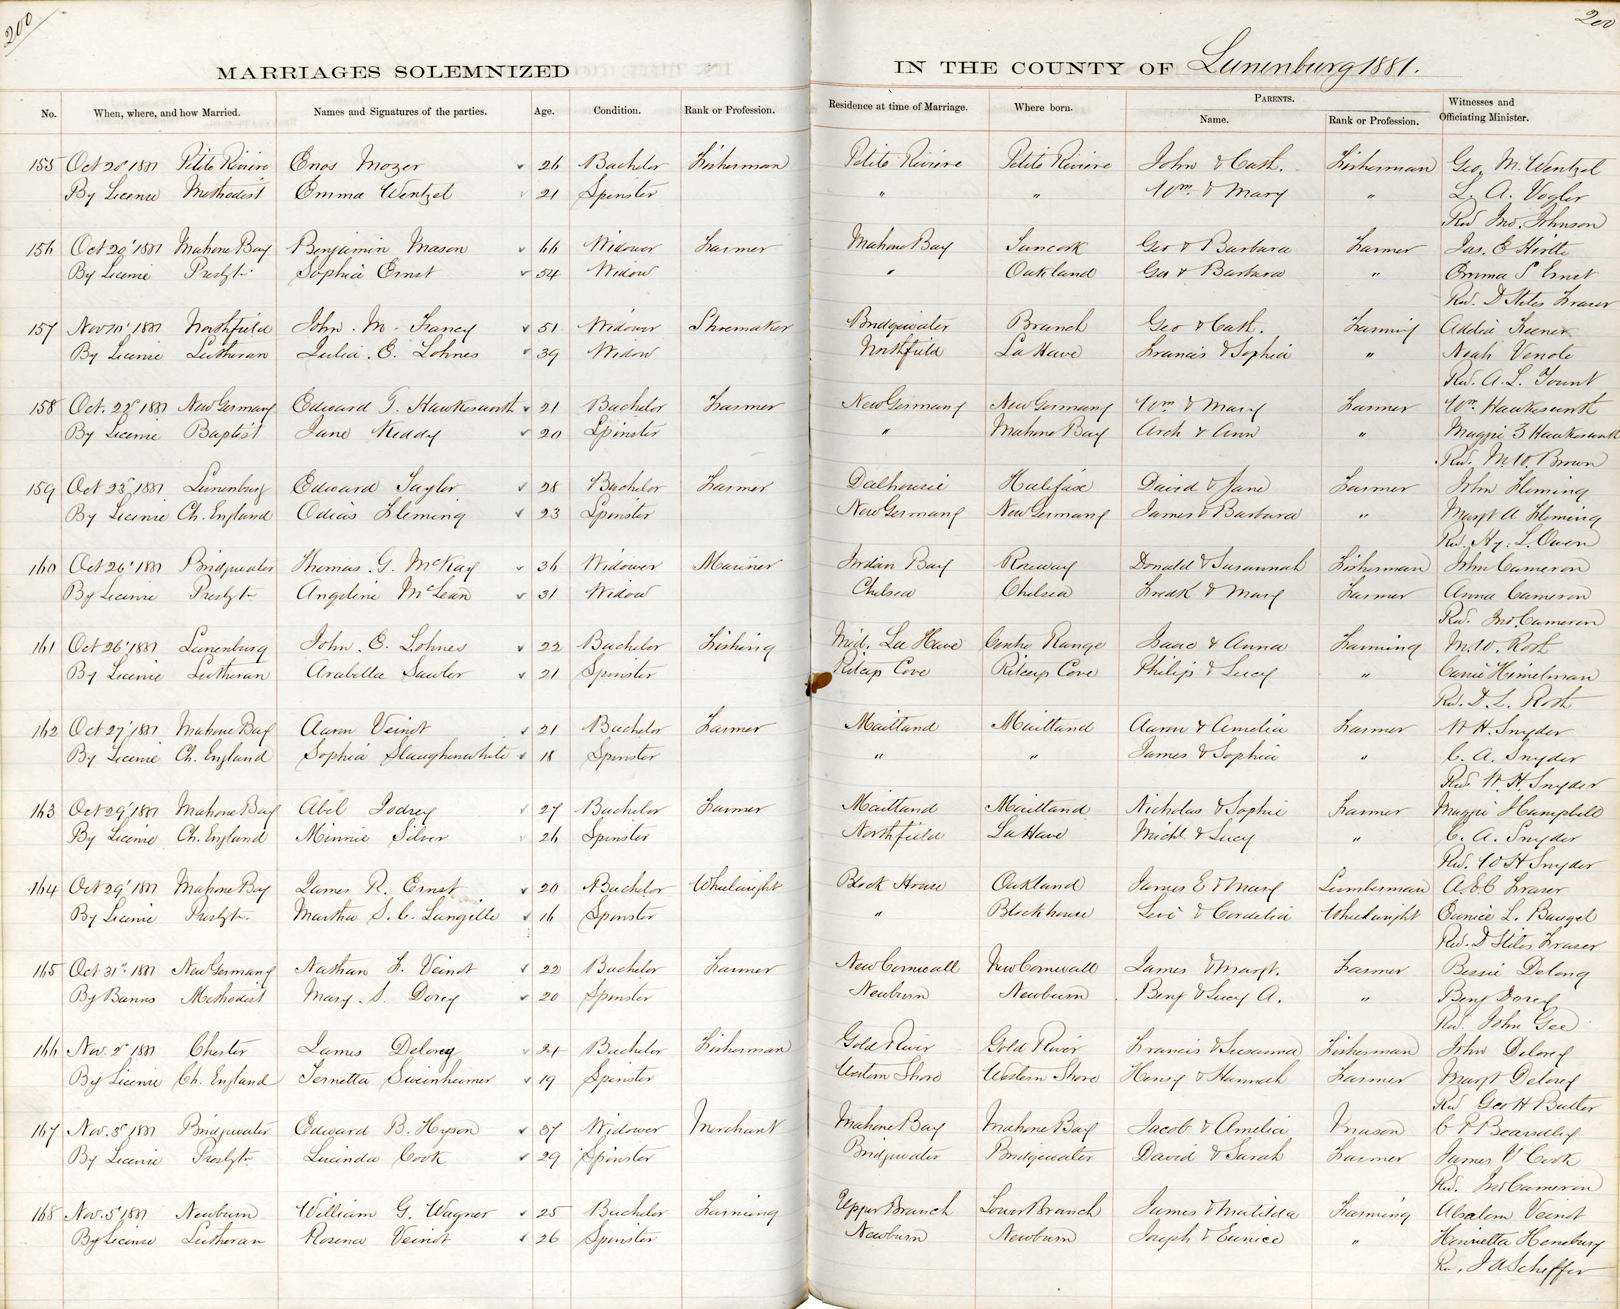 200
200
MARRIAGES SOLEMNIZED IN THE COUNTY OF Lunenburg 1881.
No. When, where, and how Married. Names and Signatures of the parties. Age. Condition. Rank or Profession. Residence at time of Marriage. Where born. PARENTS. Name. Rank or Profession. Witnesses and Officiating Minister.
155 Oct 20 1881 Petite Riviere Enos Mozer 26 Bachelor Fisherman Petite Riviere Petite Riviere John & Cath. Fisherman Geo. M. Wentzel
By Licence Methodist Emma Wentzel 21 Spinster " " Wm & Mary " L. A. Vogler
Rev Jno. Johnson
156 Oct 29 1881 Mahone Bay Benjamin Mason 66 Widower Farmer Mahone Bay Tancook Geo & Barbara Farmer Jas. E Hirtle
By Licence Presbytn Sophia Ernst 54 Widow " Oakland Geo & Barbara " Emma S Ernst
Rev. D Stiles Fraser
157 Nov 10 1881 Northfield John M. Fancy 51 Widower Shoemaker Bridgewater Branch Geo & Cath. Farming Adelia Keener
By Licence Lutheran Julia E. Lohnes 39 Widow Northfield La Have Francis & Sophia " Noah
Rev. A. L. Yount
158 Oct. 22 1881 New Germany Edward G. Hawkesworth 21 Bachelor Farmer New Germany New Germany Wm & Mary Farmer Wm Hawkesworth
By Licence Baptist Jane Keddy 20 Spinster " Mahone Bay Arch & Ann " Maggie Hawkesworth
Rev. M. W. Brown
159 Oct 25 1881 Lunenburg Edward Taylor 28 Bachelor Farmer Dalhousie Halifax David & Jane Farmer John Fleming
By Licence Ch. England Odias Fleming 23 Spinster New Germany New Germany James & Barbara " Margt A Fleming
Rev. Hy. L. Owen
160 Oct 26 1881 Bridgewater Thomas G. McKay 36 Widower Mariner Indian Bay Roseway Donald & Susannah Fisherman John Cameron
By Licence Presbytn Angeline McLean 31 Widow Chelsea Chelsea Fredk & Mary Farmer Anna Cameron
Rev. Jno. Cameron
161 Oct 26 1881 Lunenburg John E. Lohnes 22 Bachelor Fishing Mid. La Have Centre Range Isaac & Anna Farming M. W. Roth
By Licence Lutheran Arabella Sawler 21 Spinster Ritceys Cove Ritceys Cove Philip & Lucy " Carrie Heimelman
Rev. D. L. Roth
162 Oct 27 1881 Mahone Bay Aaron Veinot 21 Bachelor Farmer Maitland Maitland Aaron & Amelia Farmer W. H. Snyder
By Licence Ch. England Sophia Slaughenwhite 18 Spinster " " James & Sophia " C. A. Snyder
Rev. W. H. Snyder
163 Oct 29 1881 Mahone Bay Abel Jodrey 27 Bachelor Farmer Maitland Maitland Nicholas & Sophia Farmer Maggie Hampbell
By Licence Ch. England Minnie Silver 26 Spinster Northfield La Have Michl & Lucy " C. A. Snyder
Rev. W H Snyder
164 Oct 29 1881 Mahone Bay James R. Ernst 20 Bachelor Wheelwright Block House Oakland James E & Mary Lumberman A. E. C Fraser
By Licence Presbytn. Martha S. C. Langille 16 Spinster " Blockhouse Levi & Cordelia Wheelwright Eunice L.
Rev. D Stiles Fraser
165 Oct 31st 1881 New Germany Nathan F. Veinot 22 Bachelor Farmer New Cornwall New Cornwall James & Margt. Farmer Bessie Delong
By Banns Methodist Mary S. Dorey 20 Spinster Newburn Newburn Benj & Lucy A. " Benj Dorey
Rev. John Gee
166 Nov. 2 1881 Chester James Delorey 24 Bachelor Fisherman Gold River Gold River Francis & Susanna Fisherman John Delorey
By Licence Ch. England Ternetta Swinehamer 19 Spinster Western Shore Western Shore Henry & Hannah Farmer Margt Delorey
Rev Geo H Butler
167 Nov. 3 1881 Bridgewater Edward B. Hyson 37 Widower Merchant Mahone Bay Mahone Bay Jacob & Amelia Mason C P Beardsley
By Licence Presbytn Lucinda Cook 29 Spinster Bridgewater Bridgewater David & Sarah Farmer James V Cook
Rev. Jno Cameron
168 Nov. 5 1881 Newburn William G. Wagner 25 Bachelor Farming Upper Branch Lower Branch James & Matilda Farming Absalom Veinot
By Licence Lutheran Rosena Veinot 26 Spinster Newburn Newburn Joseph & Eunice " Henrietta
Rev. J A Scheffer